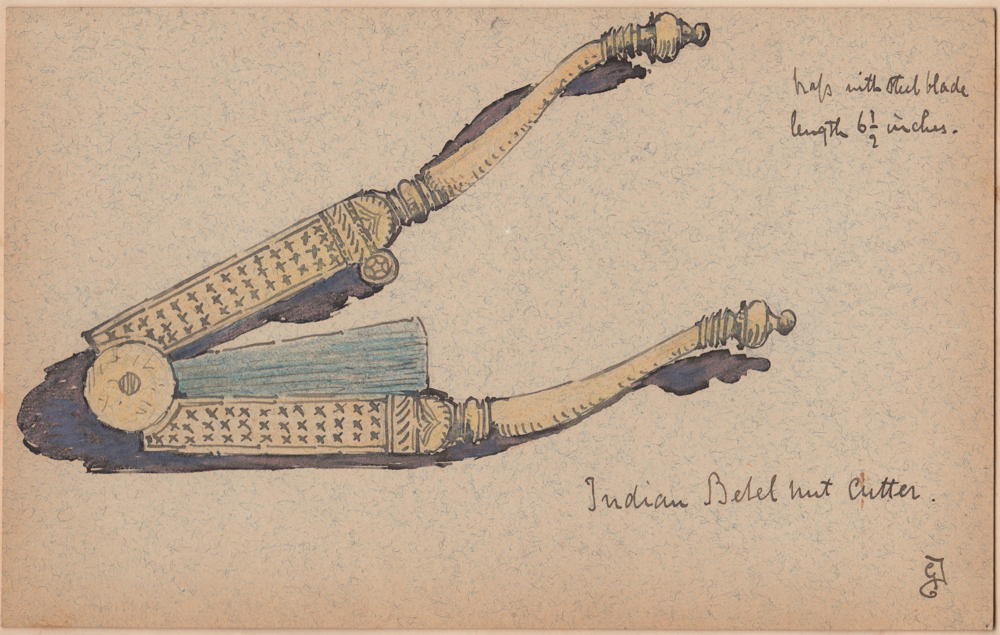 brass with steel blade
length 6 1/2 inches.
Indian Betel nut Cutter.